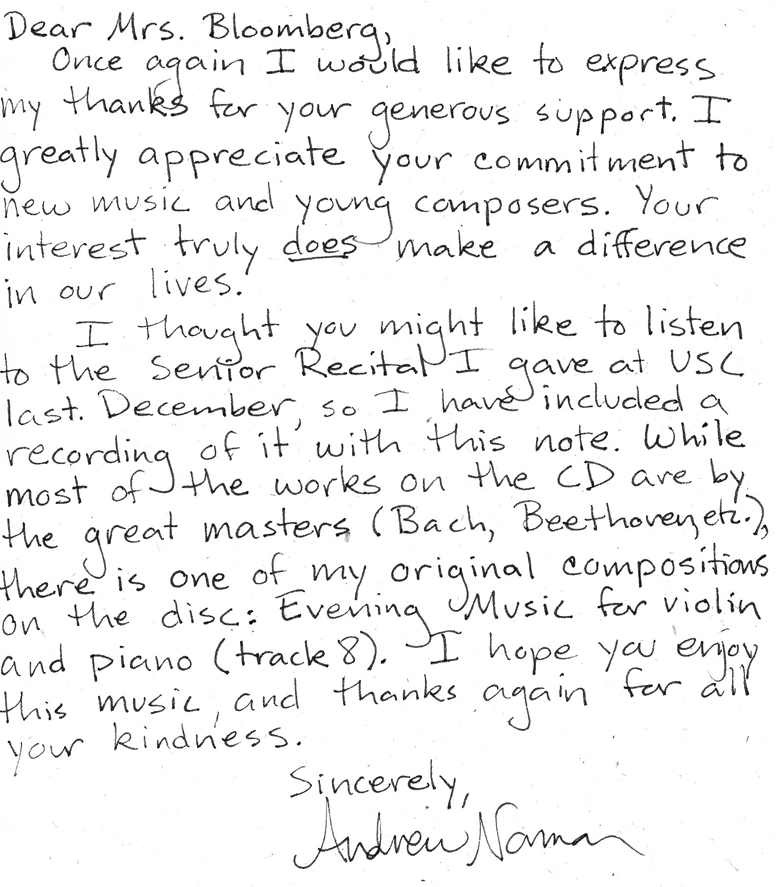 Dear Mrs. Bloomberg,
Once again I would like to express
my thanks for your generous support. I
greatly appreciate your commitment to
new music and young composers. Your
interest truly does make a difference
in our lives.
I thought you might like to listen
to the Senior Recital I gave at USC
last December, so I have included a
recording of it with this note. While
most of the works on the CD are by
the great masters (Bach, Beethoven, etc.),
there is one of my original compositions
on the disc: Evening Music for violin
and piano (track 8). I hope you enjoy
this music, and thanks again for all
your kindness.
Sincerely,
Andrew Norman